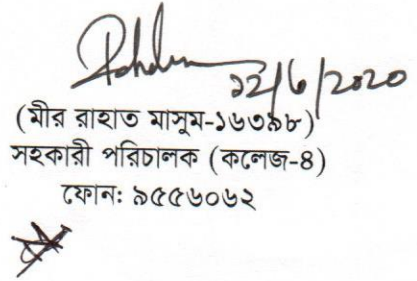 ১২/৬/২০২০
(মীর রাহাত মাসুম-১৬৩৯৮)
সহকারী পরিচালক (কলেজ-৪)
ফোনঃ ৯৫৫৬০৬২